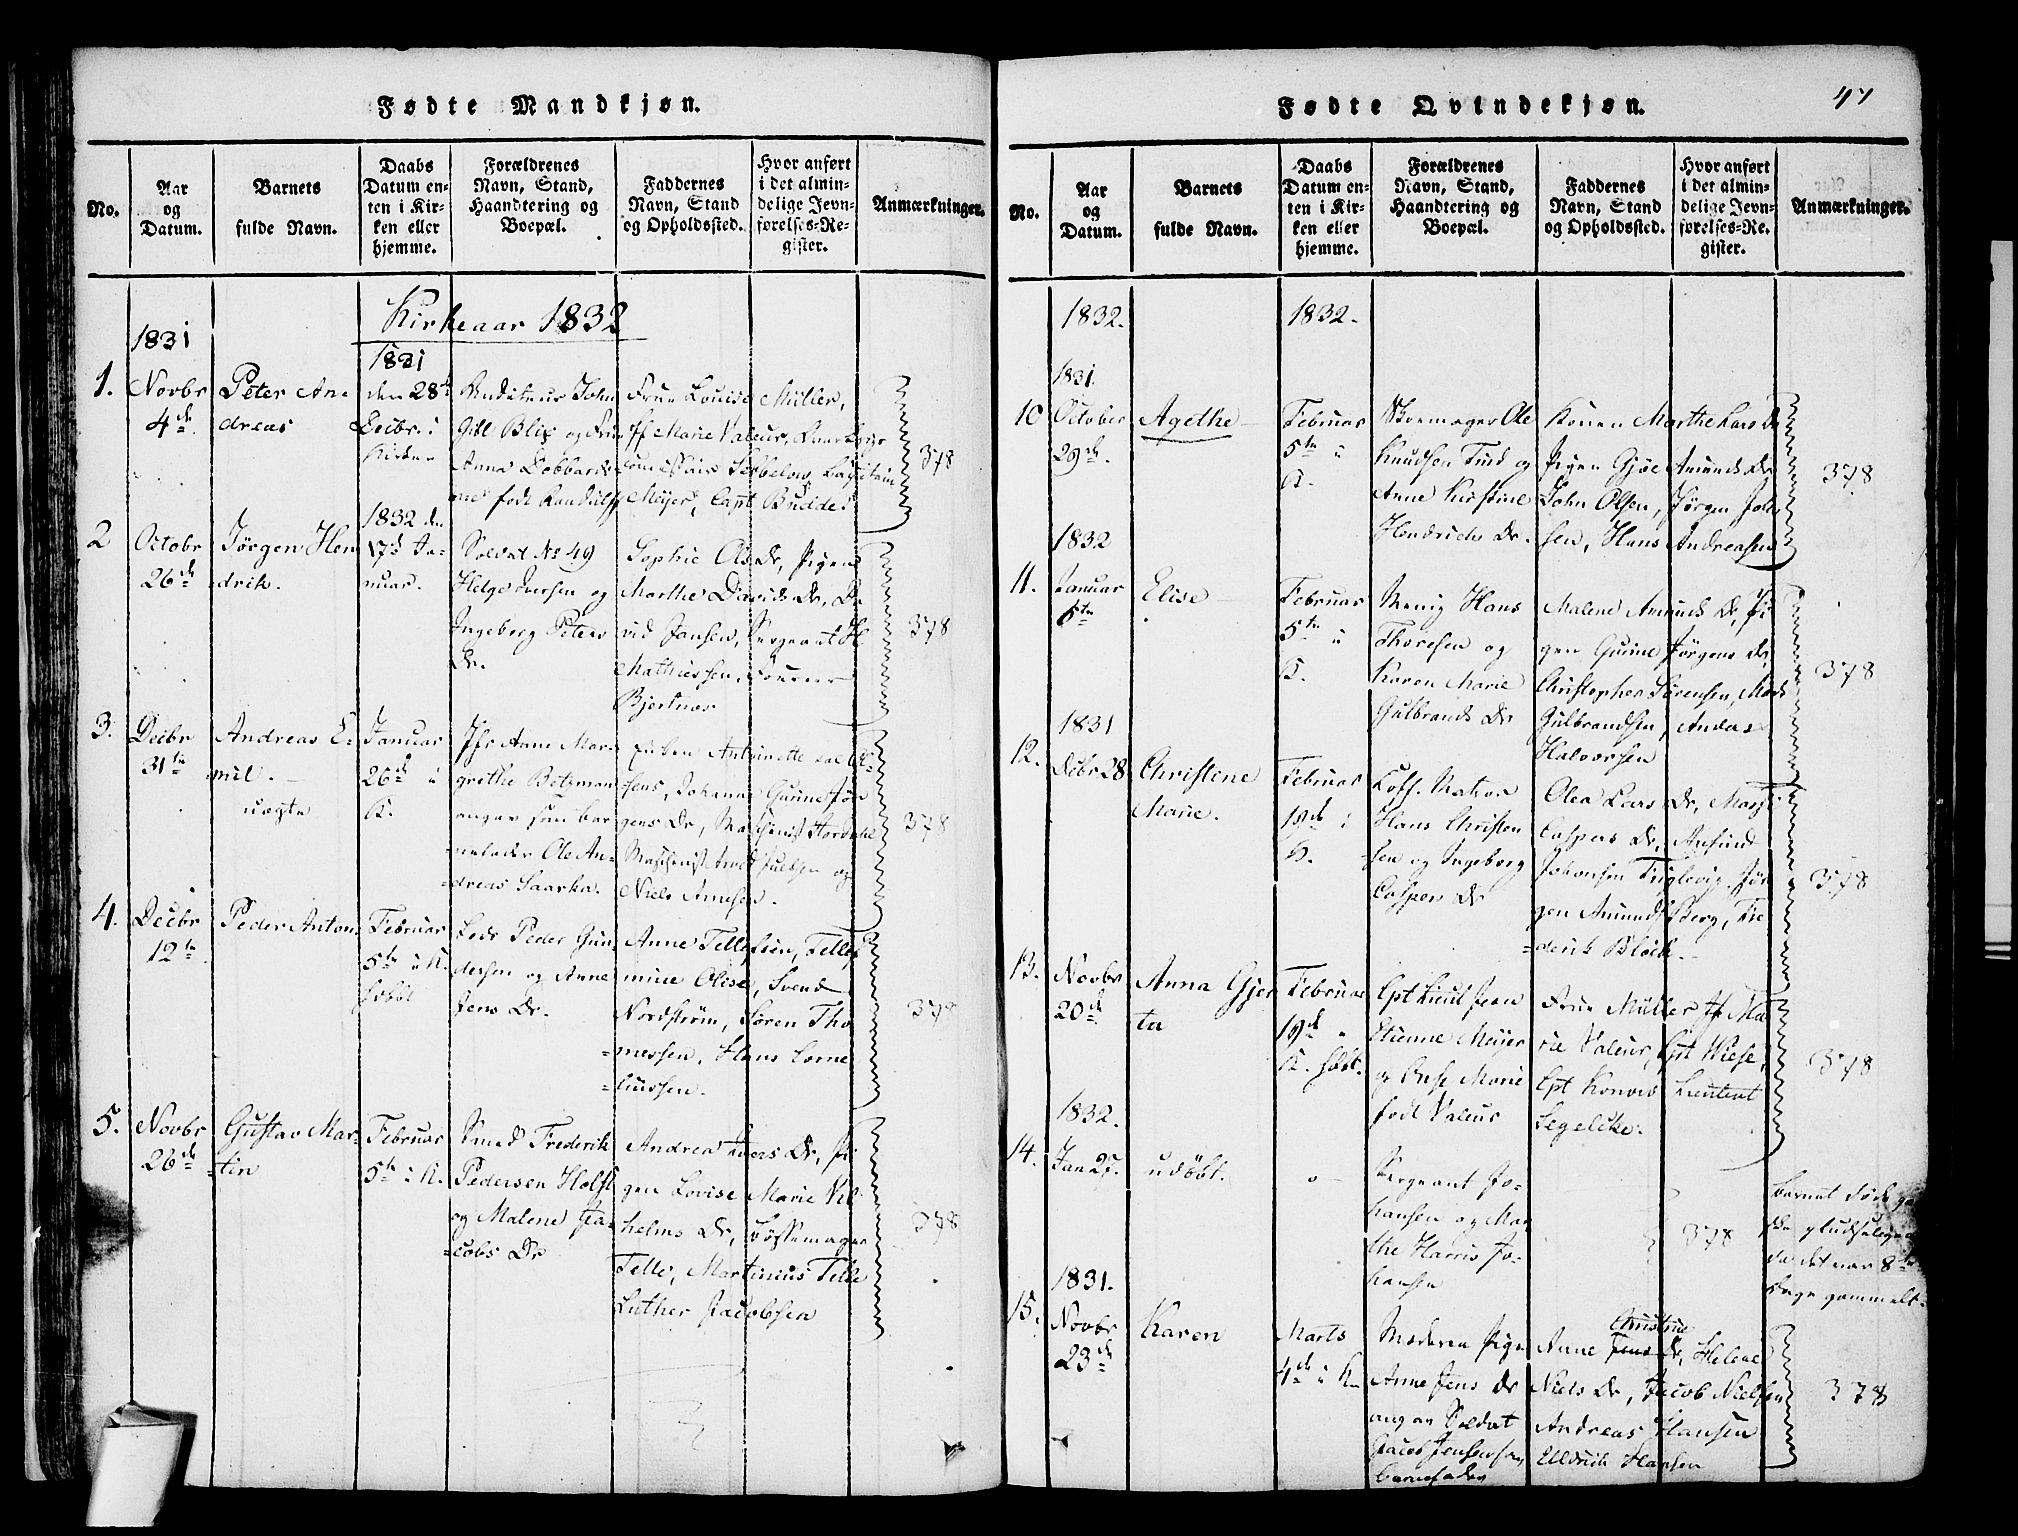 Fødte Mandkjøn.
No.
Aar
og
Datum.
Barnets
fulde Navn.
Daabs
Datum en-
ten i Kir-
ken eller
hjemme.
Forældrenes
Navn, Stand,
Haandtering og
Boepæl.
Faddernes
Navn, Stand
og Opholdssted.
Hvor anført
i det almin-
delige Jevn-
førelses-Re-
gister.
Anmærkninger.
Kirkeaar 1832
1831
1.
Novbr
4de
Peter An-
dreas
1831
den 28de
Decbr i
Kirken
Auditeur John
Gibl Blix og Frue
Anna
født Randulff
Frue Louise Müller,
Jf Marie Valeur,
Meyer, Capt Budde.
378
2
Octobr
26de
Jörgen Hen
drik.
1832 den
17de Ja-
nuar.
Soldat No 49
Helge Iversen og
Ingeborg Peters
Dr.
Sophie Ols Dr, Pigen
Marthe Davids Dr, Da
vid Jansen, Sergeant H
Mathiessen,
Bjertnæs
378
3.
Decbr
31te
Andreas E-
mil.
uægte
Januar
26de i
K.
Jfr Anne Mar-
grethe Betzman
angav som bar
nefader Ole An-
dreas Saarka.
Antoinette
Johanne Gurine Jör
gens Dr,
Niels Arnesen.
378
4.
Decbr
12te
Peder Anton
Februar
5te i K.
Peder Gun-
dersen og Anne
Jens Dr.
Anne Tellefsen, Tellef
mine Olise, Svend
Nordström, Sören Tho
messen, Hans Corne
liussen.
378
5.
Novbr
26de
Gustav Mar-
tin
Februar
5te i K.
Smed Frederik
Pedersen Holst
og Malene Ja-
cobs Dr
Andrea Ivers Dr, Pi
gen Lovise Marie Vil
helms Dr, Bössemager
Telle, Martinius Telle
Luther Jacobsen
378
Fødte Qvindekjøn.
47
No.
Aar
og
Datum.
Barnets
fulde Navn.
Daabs
Datum en-
ten i Kir-
ken eller
hjemme.
Forældrenes
Navn, Stand,
Haandtering og
Boepæl.
Faddernes
Navn, Stand
og Opholdssted.
Hvor anført
i det almin-
delige Jevn-
førelses-Re-
gister.
Anmærkninger.
1832.
1832.
1831.
10
October
29de.
Agethe
Februar
5te i
K.
Skomager Ole
Knudsen Tind og
Anne Kirstine
Hendrichs Dr.
Konen Marthe Lars Dr
Pigen Gjöe Amunds Dr
John Olsen, Jörgen Joh
sen, Hans Andreasen
378
1832
11.
Januar
6te
Elise
Februar
5te i
K.
Menig Hans
Thoresen og
Karen Marie
Gulbrands Dr
Malene Amunds Dr, Pi
gen Gurine Jörgens Dr,
Christopher Sörensen, Mads
Gulbrandsen, Andas
Halvorsen
378
1831
12.
Decbr 28
Christine
Marie.
Februar
19de i
K.
Coff. Matros
Hans Christen
sen og Ingeborg
Caspers Dr
Olea Lars Dr,
Caspers Dr, Amund
Johansen Fuglevig, Jör
gen Amundsberg, Fre
derik Block.
378
13.
Novbr
20de
Anna Gjer
ta
Februar
19de
K.
Cpt Lieut
Etienne Meyer
og
Marie
født Valeur
Frue Müller Jf Ma
rie Valeur, Cpt Wiese,
Cpt Konow Lieutent
Segelcke.
378
1832.
14.
Jan 27.
udøbt.
Sergeant Jo-
hansen og Mar
the Harris Jo-
hansen
378
Barnet døde gan
ske pludseligen
da det var 8te
Dage gammelt.
1831.
15.
Novbr
23de
Karen
Marts
4de i K.
Moderen Pige
Anne Jens Dr
angav Soldat
Jacob Jensen som
barnefader
Christine
Anne Jens Dr, Helene
Niels Dr, Jacob Nielsen
Andreas Hansen
Elldrik Hansen
378